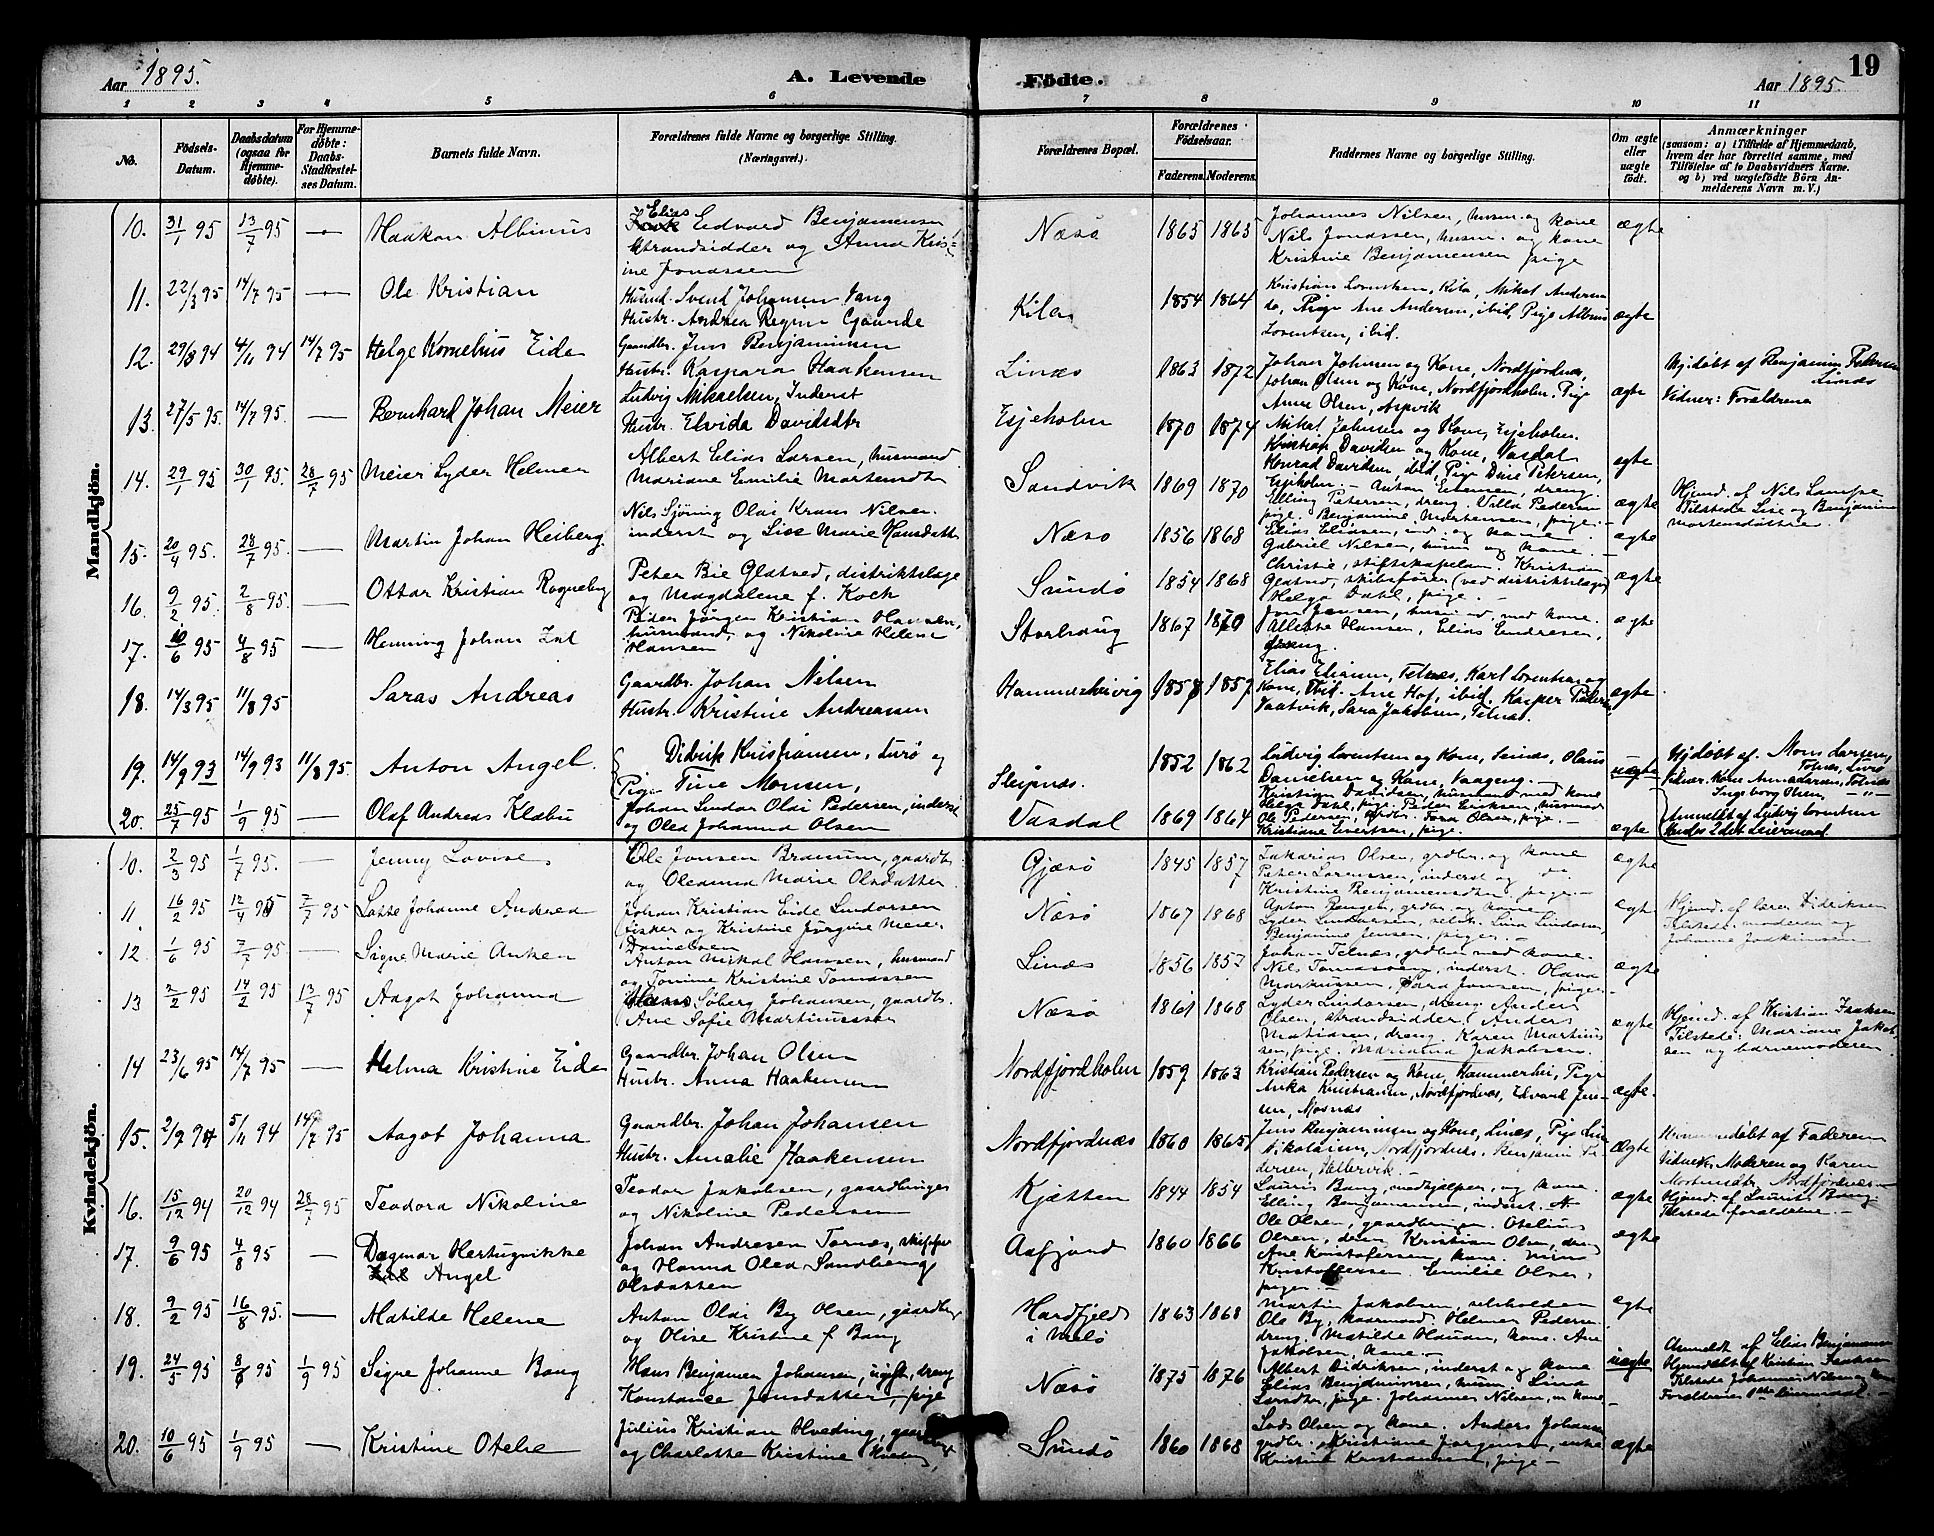 Aar 1895.
A. Levende
Fødte.
Aar 1895.
19
1 2 3 4 5 6 7 8 9 10 11
No.
Fødsels-Datum.
Daabsdatum (ogsaa for Hjemmedøbte).
For Hjemmedøbte: Daabs-Stadfæstelses Datum.
Barnets fulde Navn.
Forældrenes fulde Navne og borgerlige Stilling. (Næringsvei.)
Forældrenes Bopæl.
Forældrenes Fødselsaar.
Faderens. Moderens.
Faddernes Navne og borgerlige Stilling.
Om ægte eller uægte født.
Anmærkninger
(saasom: a) i Tilfælde af Hjemmedaab, hvem der har forrettet samme, med Tilføielse af to Daabsvidners Navne. og b) ved uægtefødte Børn Anmelderens Navn m. V.)
Mandkjön.
10. 31/1 95 13/7 95 — Haakon Albinus
Elias Edvard Benjamensen
Strandsidder og Anna Kris-
ine Jonassen
Næsö 1865 1865
Johannes Nilsen, husm. og kone
Nils Jonassen, husm. og kone
Kristine Benjamensen pige
ægte
11. 22/3 95 14/7 95 — Ole Kristian
Husmd. Svend Johansen Vang
Hustr. Andrea Regine Gaarde
Kila 1854 1864
Kristian Lorentsen, Kila, Mikal Andersen
do, Pige Ane Andersen, ibid, Pige
Lorentsen, ibid.
ægte
12. 29/8 94 4/11 94 14/7 95 Helge Kornelius Eide
Gaardbr. Jens Benjaminsen
Hustr. Kaspara Haakensen
Linæs 1863 1872
Johan Johnsen og Kone, Nordfjordnæs,
Johan Olsen og Kone, Nordfjordholm. Pige
Anna Olsen,
ægte
Hj.døbt af Benjamin Pedersen
Linæs
Vidner: Forældrene
13. 27/5 95. 14/7 95. — Bernhard Johan Meier
Ludvig Mikaelsen, Inderst
Hustr. Elvida Davidsdtr
Esjeholm 1870 1874
Mikal Johnsen og Kone, Esjeholm.
Kristian Davidsen og Kone, Vasdal
Konrad Davidsen, ibid, Pige Dine Petersen,
Esjeholm. —
ægte
14. 29/1 95 30/1 95. 28/7 95 Meier Lyder Helmer
Albert Elias Larsen, husmand.
Mariane Emilie Mortensdtr
Sandvik 1869 1870
Anton Evensen, dreng.
Elling Petersen, dreng. Villa Pedersen
pige. Benjamine Mortensen, pige. —
ægte
Hjemd. af Nils Lampe
Tilstede Lise og Benjamin
Mortensdøttre.
15. 20/4 95. 28/7 95. — Martin Johan Heiberg.
Nils Sjöning Olai Krans Nilsen.
inderst og Lise Marie Hansdatt.
Næsö 1856 1868
Elias Eliasen, ind. og kone
Gabriel Nilsen, husm og kone. —
ægte
16. 9/2 95. 2/8 95. — Ottar Kristian Rogneby
Peter Bie Glatved, distriktslæge
og Magdalene f. Koch
Sundö 1854 1868
Christie, stiftskapelan. Kristian
Glatved, skibsfører (ved distriktslægen)
Helga Dahl, pige. —
ægte
17. 10/6 95 4/8 95 — Henning Johan
Peder Jörgen Kristian Hansen,
husmand og Nikoline Helene
Hansen
Storhaug 1867 1870
Jon Jensen, husm nd. med kone.
Hansen, Elias Endresen,
dreng.
ægte
18. 14/3 95 11/8 95 Saras Andreas
Gaardbr. Johan Nilsen
Hustr. Kristine Andreasen
1857
Elias Eliasen, Telnæs, Karl Lorentsen og
Kone, Ibid. Ane Hof, ibid. Kasper Pedersen
Vaatvik, Sara Jakobsen, Telnæs.
ægte
19. 14/9 93 14/9 93 11/8 95. Anton Angel.
Didrik Kristiansen, Lurö og
Pige Tine Monsen,
Sleipnæs. 1852 1862
Ludvig Lorentsen og Kone, Selnæs, Olaus
Danielsen og Kone, Vaageng. —
uægte
Hjdøbt af Mons Larsen,
Telnæs, Lurö
Ingeborg Olsen
Anmeldt af Ludvig Lorentsen
Hendes 2det Leiermaal
20. 25/7 95 1/9 95 — Olaf Andreas Klæbu
Johan Lindar Olai Pedersen, inderst
og Olea Johanna Olsen
Vasdal 1869 1864
Kristian Davidsen, husmand med kone
Helga Dahl, pige. Peder Eriksen, husmand
Ole Pedersen, grdbr. Tora Olsen, pige. —
Kristiane Evertsen, pige.
ægte
Kvindekjön.
10. 2/3 95 1/7 95. — Jenny Lovise
Ole Jonsen Brasum, gaardbr.
og Oleanna Marie Olsdatter
Gjæsö 1845 1857
Zakarias Olsen, grdbr. og kone
Peter Lorenssen, inderst og do.
Kristine Benjamensdtr pige. —
ægte
11 16/2 95 12/4 95 7/7 95 Lotte Johanne Andrea
Johan Kristian Eide Lindorsen
fisker og Kristine Jörgine Meier
Danielsen
Næsö 1867 1868
Anton Bengtsen, grdbr og kone
Lyder Lindorsen, selvh. Lina Lindorsen,
Benjamine Jensen, piger. —
ægte
Hjemd. af lærer Didriksen
Tilstede: moderen og
Johanne Joakimsen
12. 1/6 95 7/7 95 — Signe Marie Anken
Anton Mikal Hansen, husmand
og Tomine Kristine Tomassen
Linæs 1856 1857
Johan Telnæs, grdbr med kone.
Nils Tomassen, inderst. Olana
Markussen, Sara Jonsen, piger. —
ægte
13 2/2 95 14/2 95 13/7 95 Aagot Johanna
Söberg Johansen, gaardbr.
Ane Sofie Martinussen
Næsö 1861 1868
Lyder Lindorsen, dreng. Anders
Olsen, strandsidder. Anders
Matiasen, dreng. Karen Martinus
sen, pige. Marianna Jakobsen.
ægte
Hjemd. af Kristian Isaksen
Tilstede: Mariane Jakob
sen og barnemoderen
14 23/6 95 14/7 95 — Helma Kristine Eide
Gaardbr. Johan Olsen
Hustr. Anna Haakensen
Nordfjordholm 1859 1863
Kristian Pedersen og Kone, Hammerhei, Pige
Anka Kristiansen, Nordfjordnæs, Edvard Jen-
sen, Mosnæs
ægte.
15. 2/9 94 5/11 94 14/7 95 Aagot Johanna
Gaardbr. Johan Johansen
Hustr. Amalie Haakensen
Nordfjordnæs 1860 1865
Jens Benjaminsen og Kone, Linæs, Pige
Nikolaisen, Nordfjordnæs. Benjamin Pe-
dersen,
ægte
Hjemmedøbt af Faderen
Vidner: Moderen og Karen
Mortensdtr. Nordfjordnæs —
16. 15/12 94 20/12 94 28/7 95 Teodora Nikoline
Teodor Jakobsen, gaardbruger
og Nikoline Pedersen
Kjøtten 1844 1854
Laurits Bang, medhjælper, og kone.
Elling Benjamensen, inderst.
Ole Olsen, gaardbruger.
ægte
Hjemd. af Laurits Bang.
Tilstede forældrene. —
17. 9/6 95 4/8 95 — Dagmar Hertugvikke
Angel
Johan Andresen Tornæs, skipper
og Hanna Olea Sandberg
Olsdatter
Aafjord 1860 1866
Otelius
Olsen, dreng Kristian Olsen, dreng
Ane Kristofersen, kone. Mina
Kristoffersen. Emilie Olsen,
piger. —
ægte
18. 9/2 95 16/8 95. — Matilde Helene
Anton Olai By Olsen, gaardbr.
og Olise Kristine f Bang
Hardfjeld
i Melö
1863 1868
Martin Jakobsen, selvholden
Ole By, kaarmand. Helmer Pedersen
dreng. Matilde Hansen, kone. Ane
Jakobsen, kone. —
ægte
19. 24/5 95 8/6 95 1/9 95 Signe Johanne Bang
Hans Benjamen Johansen, ugift, dreng
Konstance Jensdatter, pige
Næsö 1875 1876
Albert Didriksen, inderst og kone
Elias Benjaminsen, husm. Lina
Larsdtr, pige. Johannes Nilsen, m kone.
uægte
Anmeldt af Elias Benjamensen
Hjemdøbt af Kristian Isaksen
Tilstede Johannes Nilsen og kone
Forældrenes 1ste leiermaal —
20. 10/6 95 1/9 95 — Kristine Otelie
Julius Kristian Hveding, gaardbr.
og Charlotte Kristine Hveding,
Sundö 1860 1868
Lods Olsen og kone. Anders Johansen
grdbr. Kristiane Jørgensen, enke
Kristine Kristiansen, pige —
ægte